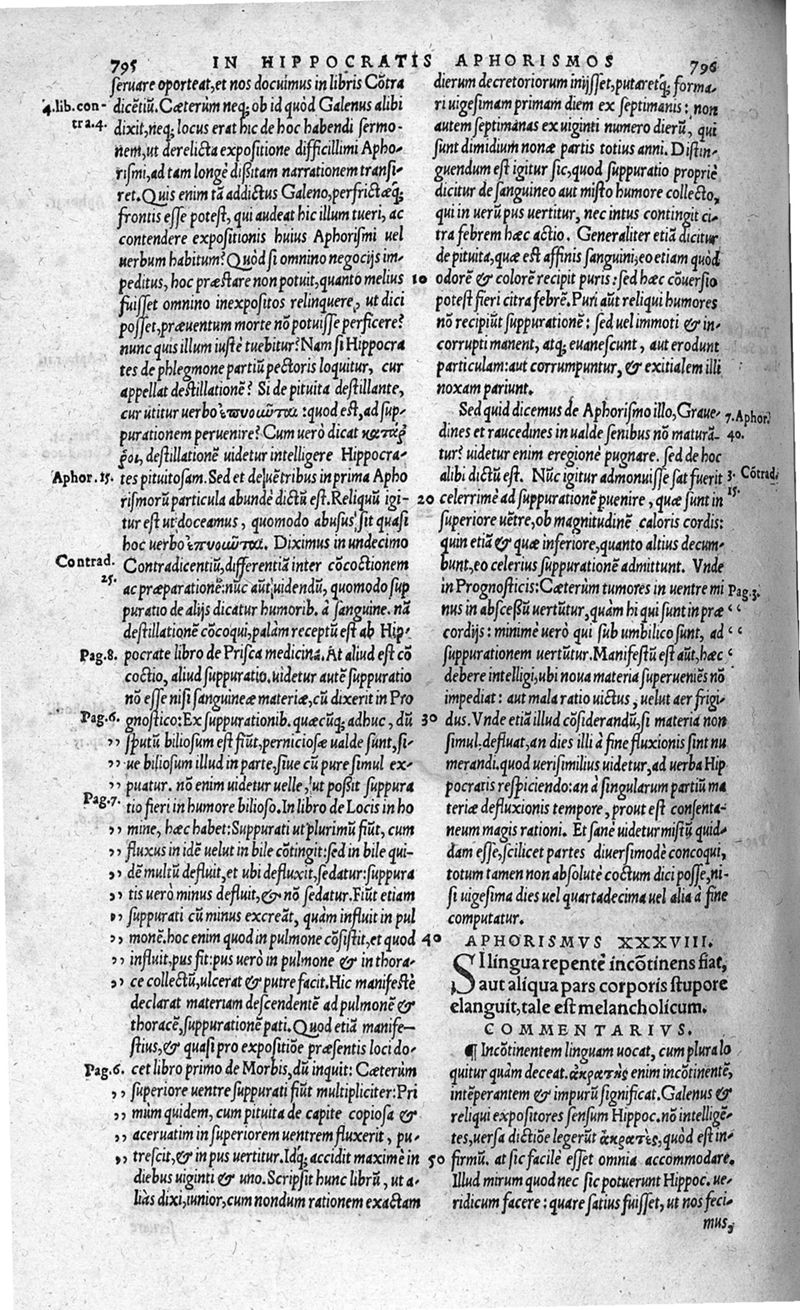 795 IN HIPPOCRATIS APHORISMOS 796
seruare oporteat, et nos docuimus in libris Cõtra
4.lib.con- dicẽtiũ. Cæterùm neq; ob id quòd Galenus alibi
tra.4. dixit, neq; locus erat hic de hoc habendi sermo-
nem, ut derelicta expositione difficillimi Apho-
rismi, ad tam longè dißitam narrationem transi-
ret. Quis enim tã addictus Galeno, perfrictæq;
frontis esse potest, qui audeat hic illum tueri, ac
contendere expositionis huius Aphorismi uel
uerbum habitum? Quòd si omnino negocijs im-
peditus, hoc præstare non potuit, quanto melius 10
fuisset omnino inexpositos relinquere, ut dici
posset, præuentum morte nõ potuisse perficere?
nunc quis illum iustè tuebitur? Nam si Hippocra
tes de phlegmone partiũ pectoris loquitur, cur
appellat destillationẽ? Si de pituita destillante,
cur utitur uerbo ἐπυοιῶται: quod est, ad sup-
purationem peruenire? Cum uerò dicat κατάῤ
ῥοι, destillationẽ uidetur intelligere Hippocra-
Aphor.15. tes pituitosam. Sed et de uẽtribus in prima Apho
rismorum particula abundè dictũ est. Reliquũ igi- 20
tur est ut doceamus, quomodo abusus sit quasi
hoc uerbo ἐπυοιῶται. Diximus in undecimo
Contrad. Contradicentiũ, differentiã inter cõcoctionem
25. ac præparationẽ: nũc aũt uidendũ, quomodo sup
puratio de alijs dicatur humorib. à sanguine. nã
destillationẽ cõcoqui, palàm receptũ est ab Hip-
Pag.8. pocrate libro de Prisca medicina. At aliud est cõ
coctio, aliud suppuratio. uidetur autẽ suppuratio
nõ esse nisi sanguineæ materiæ, cũ dixerit in Pro
Pag.6. gnostico: Ex suppurationib. quæcũq; adhuc, dũ 30
,, sputũ biliosum est fiũt, perniciosæ ualde sunt, si-
,, ue biliosum illud in parte, siue cũ pure simul ex-
,, puatur. nõ enim uidetur uelle, ut poßit suppura
Pag.7. tio fieri in humore bilioso. In libro de Locis in ho
,, mine, hæc habet: Suppurati ut plurimũ fiũt, cum
,, fluxus in idẽ uelut in bile cõtingit: sed in bile qui-
,, dẽ multũ defluit, et ubi defluxit, sedatur: suppura
,, tis uerò minus defluit, & nõ sedatur. Fiũt etiam
,, suppurati cũ minus excreãt, quàm influit in pul
,, monẽ. hoc enim quod in pulmone cõsistit, et quod 40
,, influit, pus fit: pus uerò in pulmone & in thora-
,, ce collectũ, ulcerat & putre facit. Hic manifestè
declarat materiam descendentẽ ad pulmonẽ &
thoracẽ, suppurationẽ pati. Quod etiã manife-
stius, & quasi pro expositiõe præsentis loci do-
Pag.6. cet libro primo de Morbis, dũ inquit: Cæterùm
,, superiore uentre suppurati fiũt multipliciter: Pri
,, mùm quidem, cum pituita de capite copiosa &
,, aceruatim in superiorem uentrem fluxerit, pu-
,, trescit, & in pus uertitur. Idq; accidit maximè in 50
diebus uiginti & uno. Scripsit hunc librũ, ut a-
liàs dixi, iunior, cum nondum rationem exactam
dierum decretoriorum inijsset, putaretq; forma-
ri uigesimam primam diem ex septimanis: non
autem septimanas ex uiginti numero dierũ, qui
sunt dimidium nonæ partis totius anni. Distin-
guendum est igitur sic, quòd suppuratio propriè
dicitur de sanguineo aut misto humore collecto,
qui in uerũ pus uertitur, nec intus contingit ci-
tra febrem hæc actio. Generaliter etiã dicitur
de pituita, quæ est affinis sanguini, eo etiam quòd
odorẽ & colorẽ recipit puris: sed hæc cõuersio
potest fieri citra febrẽ. Puri aũt reliqui humores
nõ recipiũt suppurationẽ: sed uel immoti & in-
corrupti manent, atq; euanescunt, aut erodunt
particulam: aut corrumpuntur, & exitialem illi
noxam pariunt.
Sed quid dicemus de Aphorismo illo, Graue- 7.Aphor.
dines et raucedines in ualde senibus nõ maturã- 40.
tur? uidetur enim eregione pugnare. sed de hoc
alibi dictũ est. Nũc igitur admonuisse sat fuerit 3. Cõtrad.
celerrimè ad suppurationẽ puenire, quæ sunt in 15.
superiore uẽtre, ob magnitudinẽ caloris cordis:
quin etiã & quæ inferiore, quanto altius decum-
bunt, eo celerius suppurationẽ admittunt. Vnde
in Prognosticis: Cæterùm tumores in uentre mi Pag.3.
nus in abscessũ uertũtur, quàm hi qui sunt in præ ‘‘
cordijs: minimè uerò qui sub umbilico sunt, ad ‘‘
suppurationem uertũtur. Manifestũ est aũt, hæc
debere intelligi, ubi noua materia superueniẽs nõ
impediat: aut mala ratio uictus, uelut aer frigi-
dus. Vnde etiã illud cõsiderandũ, si materia non
simul defluat, an dies illi à fine fluxionis sint nu
merandi. quod uerisimilius uidetur, ad uerba Hip
pocratis respiciendo: an à singularum partiũ ma
teriæ defluxionis tempore, prout est consenta-
neum magis rationi. Et sanè uidetur mistũ quid-
dam esse, scilicet partes diuersimodè concoqui,
totum tamen non absolutè coctum dici posse, ni-
si uigesima dies uel quartadecima uel alia à fine
computatur.
APHORISMVS XXXVIII.
SI lingua repentè incõtinens fiat,
aut aliqua pars corporis stupore
elanguit, tale est melancholicum.
COMMENTARIVS.
¶ Incõtinentem linguam uocat, cum plura lo
quitur quàm deceat. ἀκρατής enim incõtinentẽ,
intẽperantem & impurũ significat. Galenus &
reliqui expositores sensum Hippoc. nõ intelligẽ-
tes, uersa dictiõe legerũt ἀκρατὲς, quòd est in-
firmũ. at sic facilè esset omnia accommodare.
Illud mirum quod nec sic potuerunt Hippoc. ue-
ridicum facere: quare satius fuisset, ut nos feci-
mus,